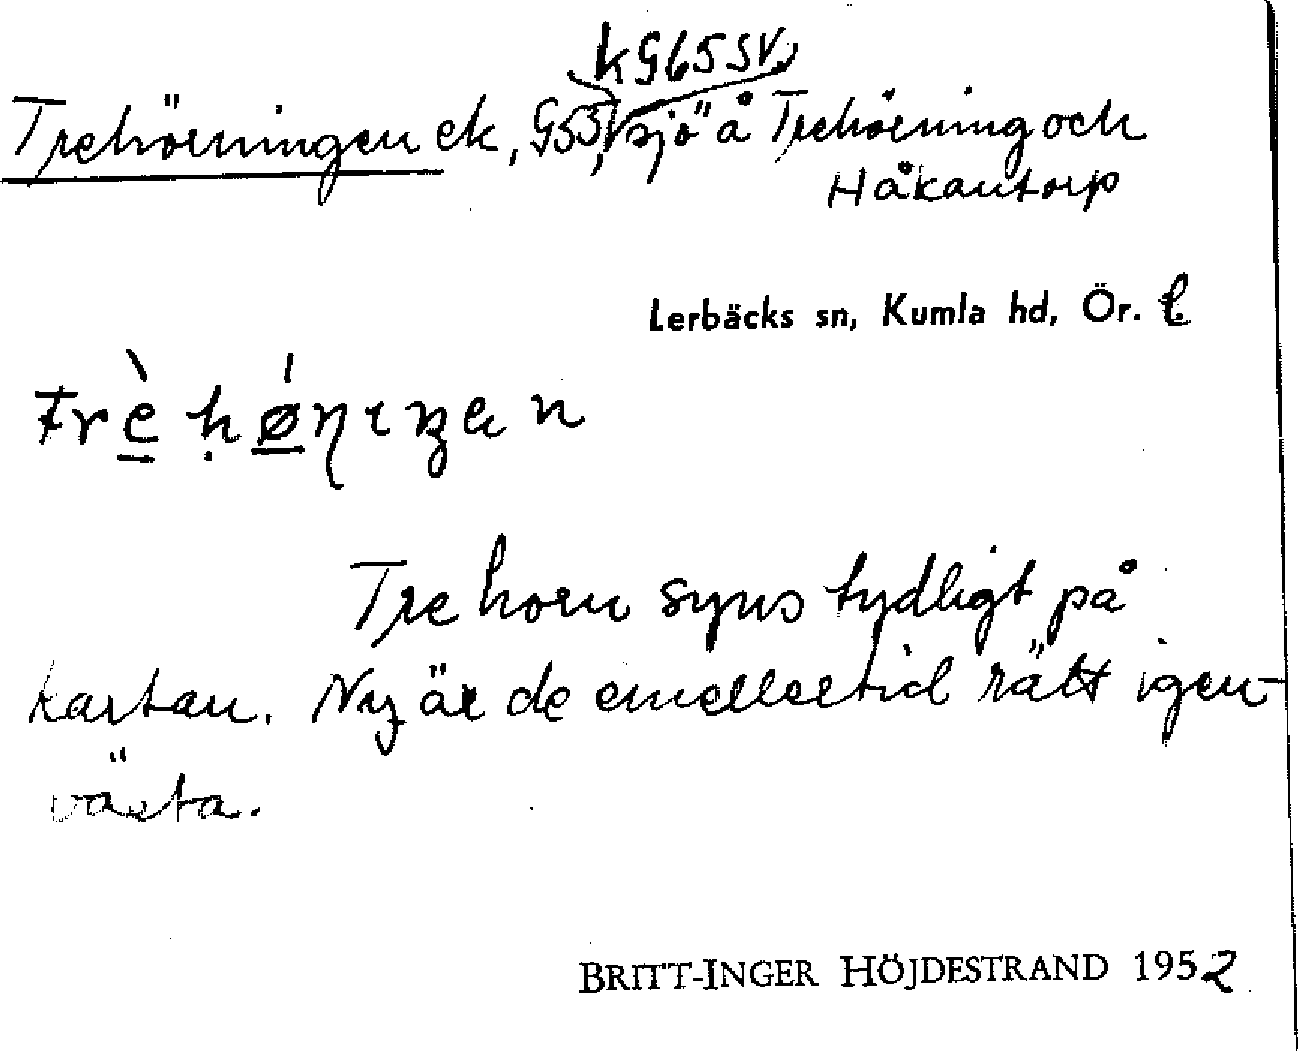 k G65 SV,
Trehörningen ek, G53, sjö å Trehörning och
Håkantorp
Lerbäcks sn, Kumla hd, Ör. l
Tre horn syns tydligt på
kartan. Ny är de emellertid rätt igen-
växta.
BRITT-INGER HÖJDESTRAND 1952